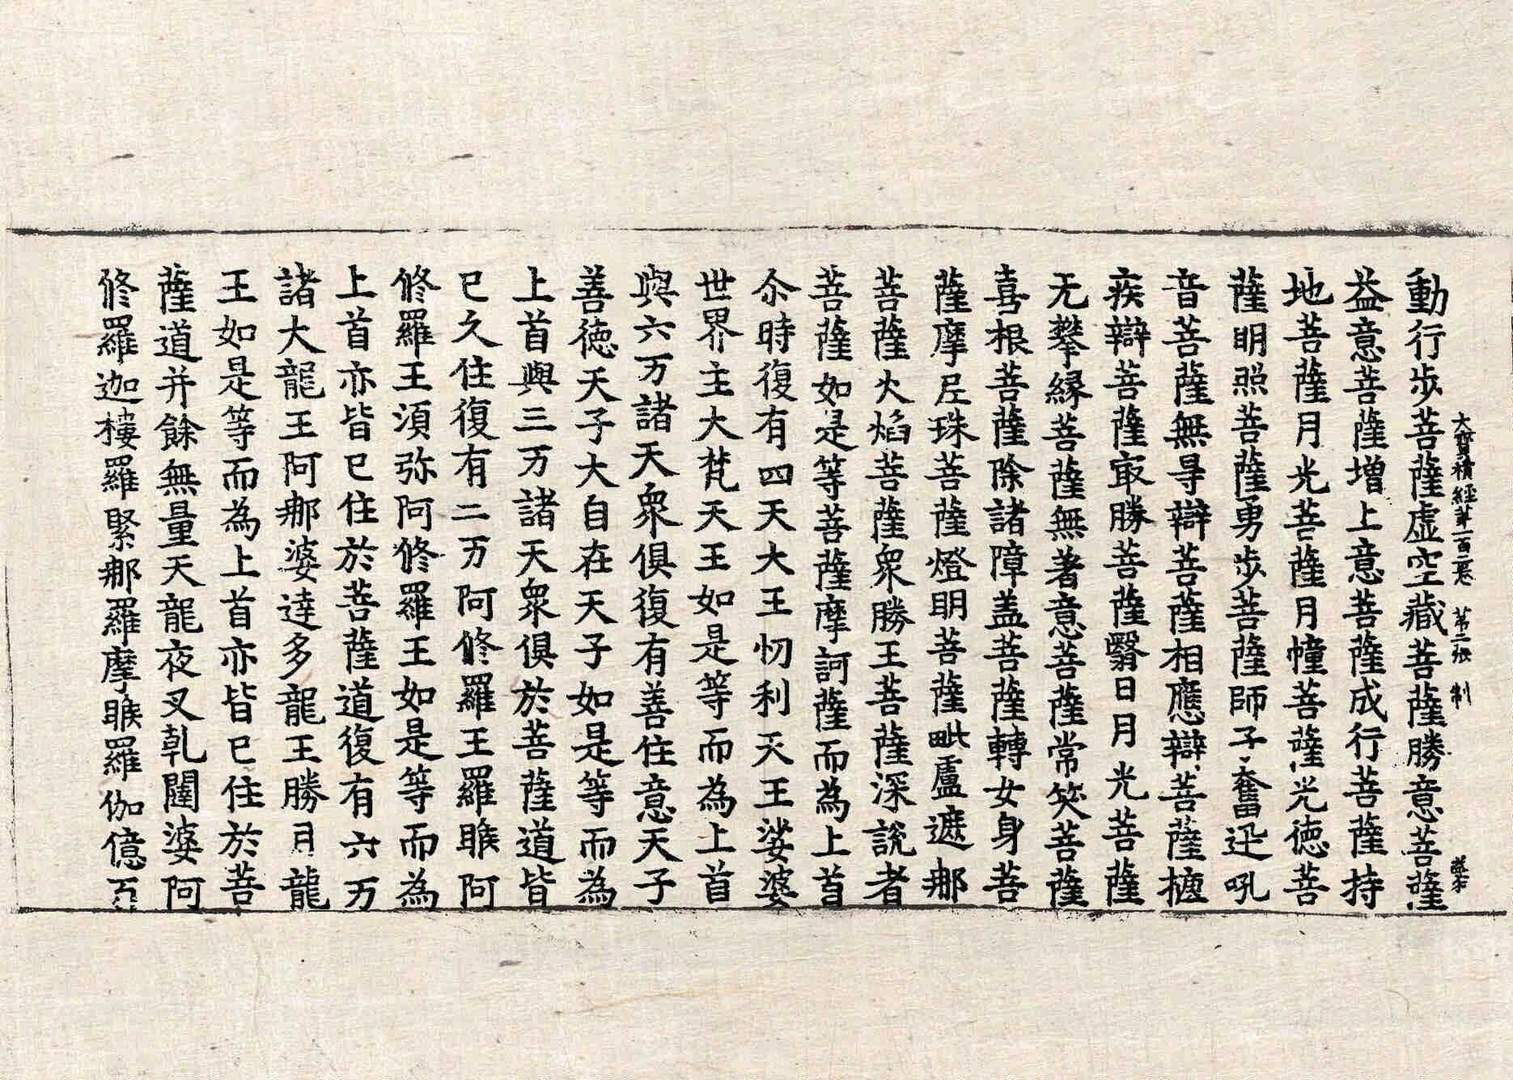 大寶積經第一百二卷 第二張 制
動行步菩薩虛空藏菩薩勝意菩薩
益意菩薩增上意菩薩成行菩薩持
地菩薩月光菩薩月幢菩薩光德菩
薩明照菩薩勇步菩薩師子奮迅吼
音菩薩無㝵辯菩薩相應辯菩薩捷
疾辯菩薩㝡勝菩薩翳日月光菩薩
无攀緣菩薩無著意菩薩常笑菩薩
喜根菩薩除諸障盖菩薩轉女身菩
薩摩尼珠菩薩燈明菩薩毗盧遮那
菩薩火焰菩薩衆勝王菩薩深說者
菩薩如是等菩薩摩訶薩而為上首
尒時復有四天大王忉利天王娑婆
世界主大梵天王如是等而為上首
與六万諸天衆俱復有善住意天子
善德天子大自在天子如是等而為
上首與三万諸天衆俱於菩薩道皆
已久住復有二万阿修羅王羅睺阿
修羅王須弥阿修羅王如是等而為
上首亦皆已住於菩薩道復有六万
諸大龍王阿那婆達多龍王勝月龍
王如是等而為上首亦皆已住於菩
薩道并餘無量天龍夜叉乹闥婆阿
修羅迦樓羅緊那羅摩睺羅伽億百